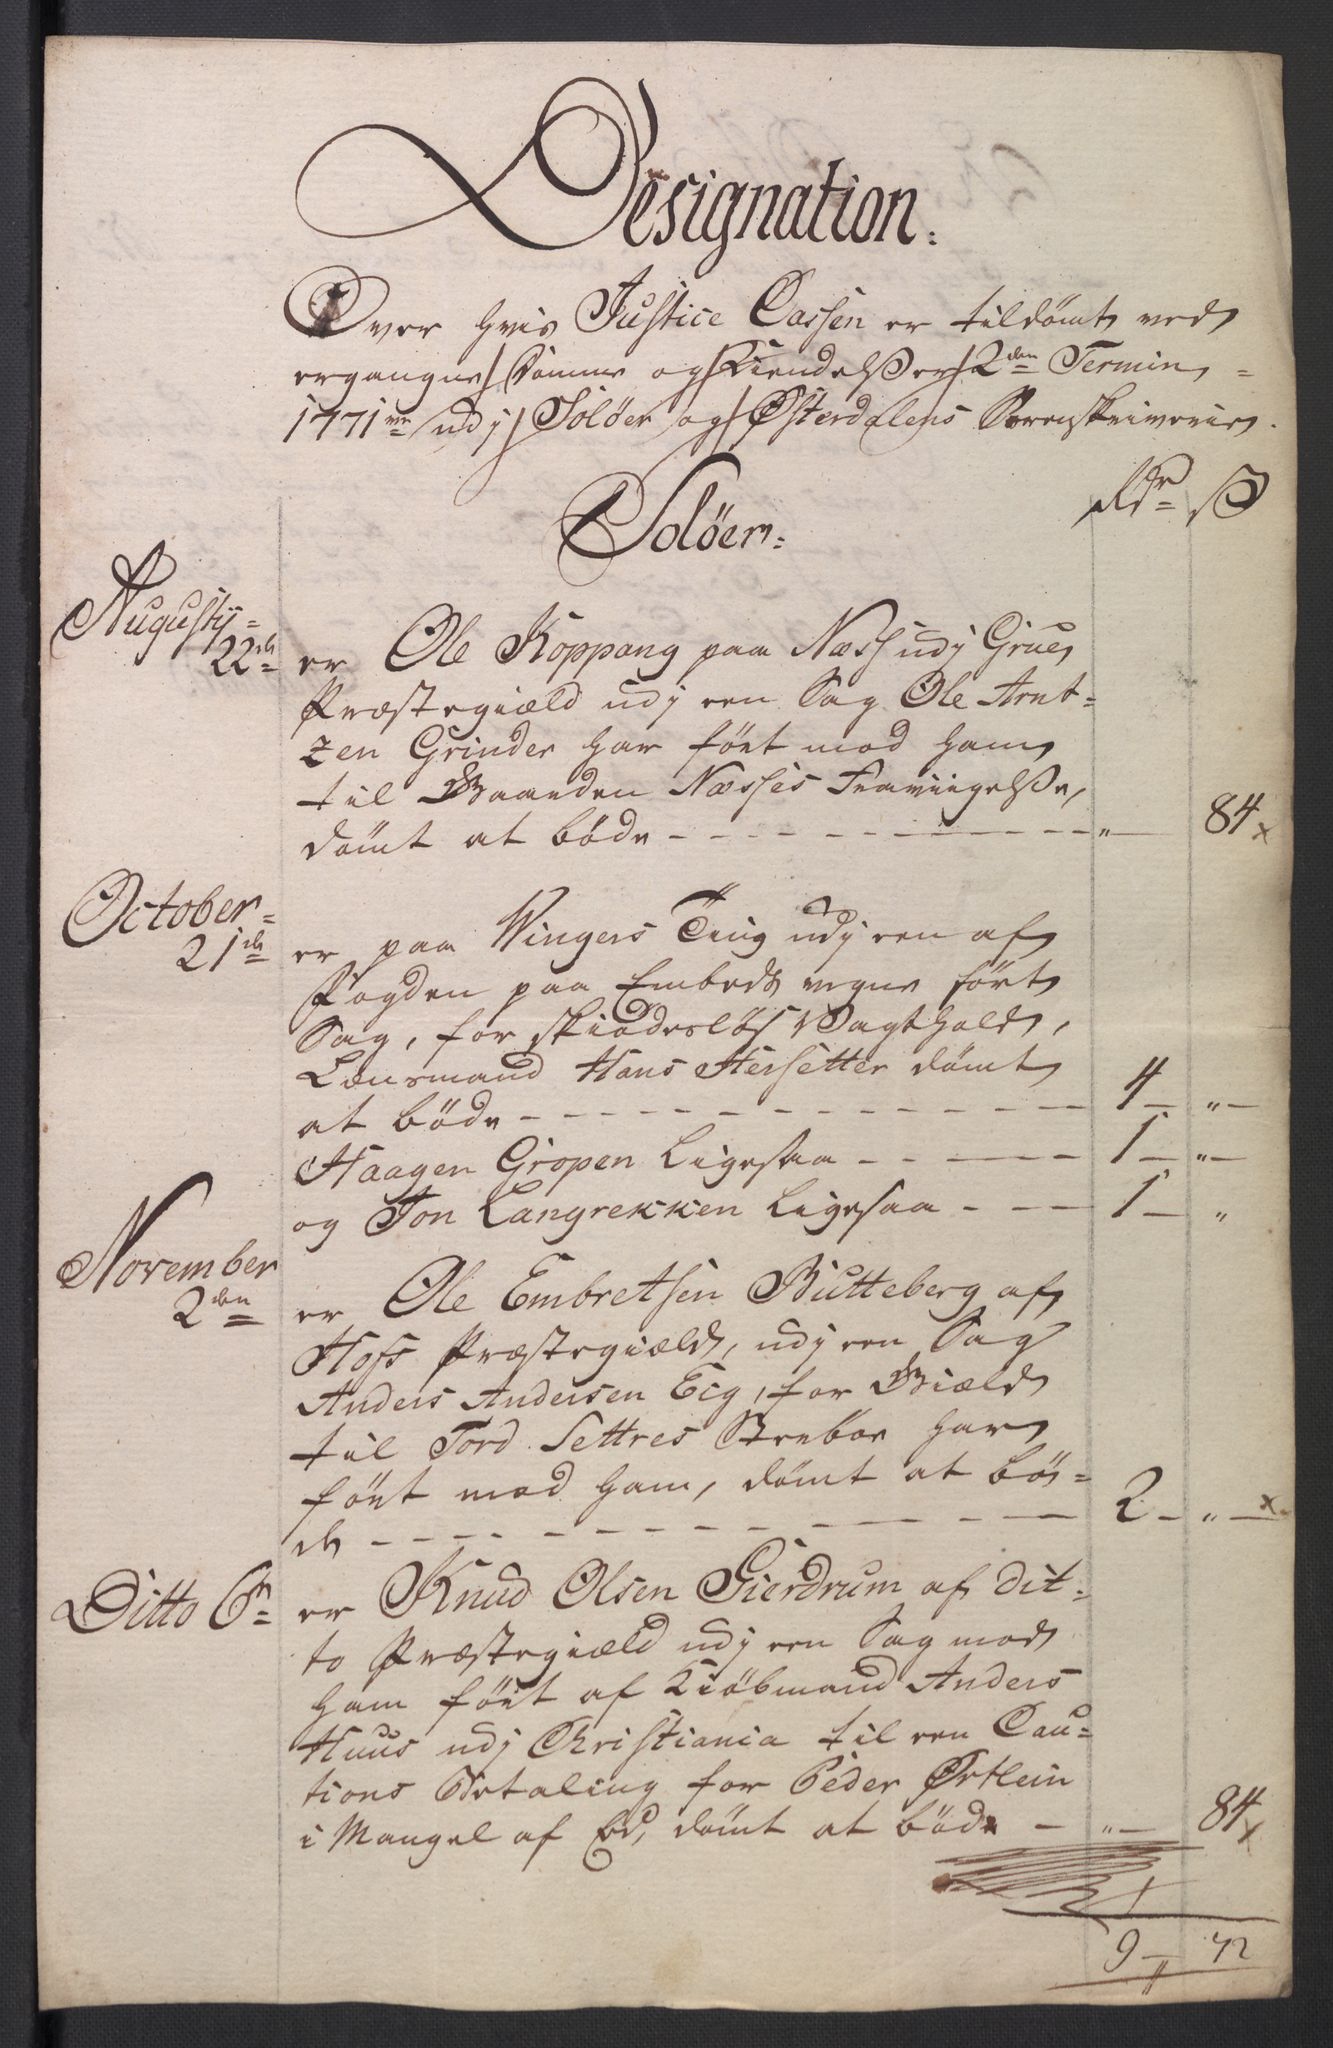 Designation
Over hvis Justice Cassen er tildömt ved
ergangne Domme og Kiendelsser 2den Termin
1771 udj Solöer og Østerdalens Sorenskriverie
Rdr ß
Solöer
Augustij
22de er Ole Koppang paa Næss udj Grue
Præstegiæld udj een Sag Ole Arnt-
zen Grinder har fört mod ham
til Gaarden Næsses Fraviigelsse,
dömt at böde - - - " 84
October
21de er paa Wingers Ting udj een af
Fogden paa Embeds vegne fört
Sag, for skiödeslös Vagthold,
Lænsmand Hans Hersetter dömt
at böde - - - 4 - "
Haagen Gropen Ligesaa - - - 1 - "
og Jon Langrekken Ligesaa - - - 1 - "
November
2den er Ole Embretsen Butteberg af
Hofs Præstegiæld, udj een Sag
Anders Andersen Eig, for Giæld
til Tord Settres Sterboe har
fört mod ham, dömt at bö-
de - - - 2 - "
Ditto 6te er Knud Olsen Gierdrum af dit-
to Præstegiæld udj een Sag mod
ham fört af Kiöbmand Anders
Huus udj Christiania til een Cau-
tions Betaling for Peder Ørtlein
i Mangel af Ed, dömt at böde - " 84
9 - 72